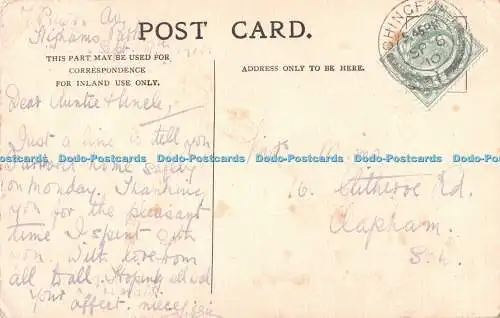 Highams Park
POST CARD.
THIS PART MAY BE USED FOR
CORRESPONDENCE
FOR INLAND USE ONLY.
ADDRESS ONLY TO BE HERE.
CHINGFORD
SP 6
10
Dear Auntie & Uncle,
Just a line to tell you
I arrived home safely
on Monday. Thanking
you for the pleasant
time I spent with
you. With love from
all to all. Hoping all well
your affect. niece
16 Clitheroe Rd.
Clapham.
S.W.
Dodo-Postcards Dodo-Postcards Dodo-Postcards Dodo-Postcards Dodo-Postcards Dodo-Postcards